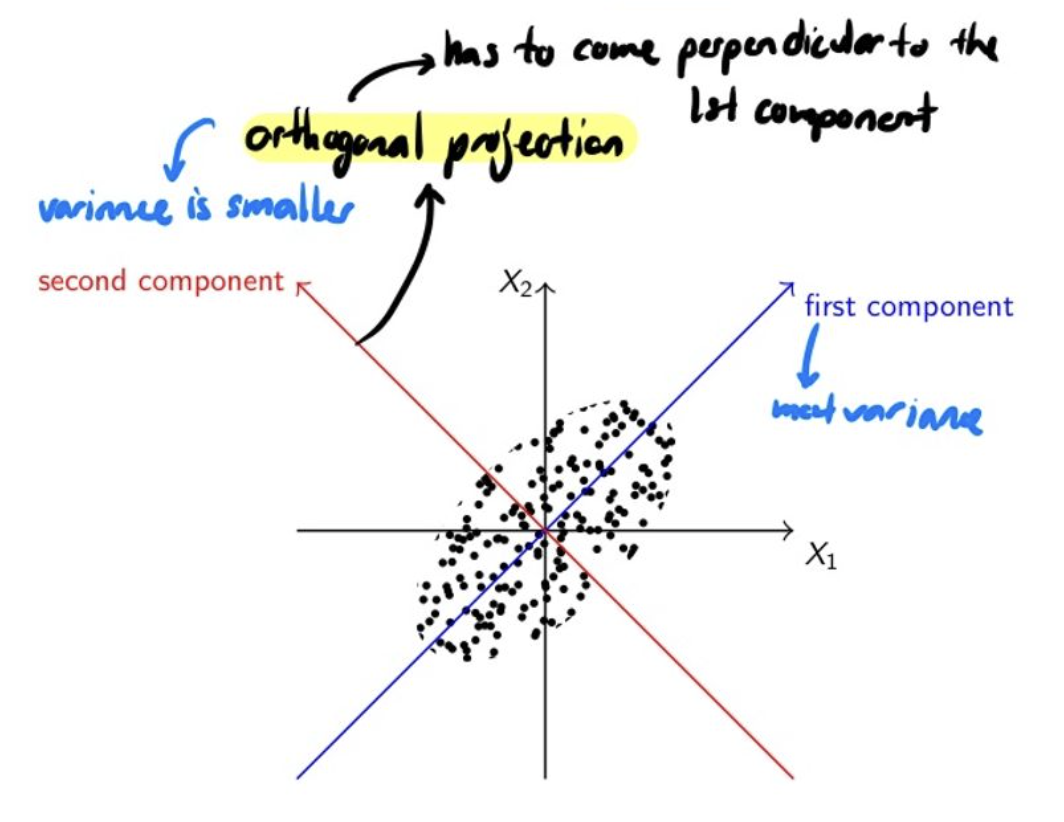 has to come perpendicular to the
1st component
orthogonal projection
variance is smaller
second component
X₂
first component
most variance
X₁